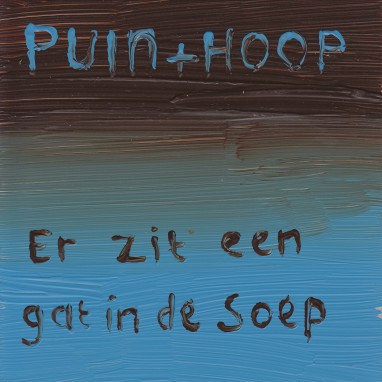 PUIN + HOOP
Er zit een
gat in de Soep